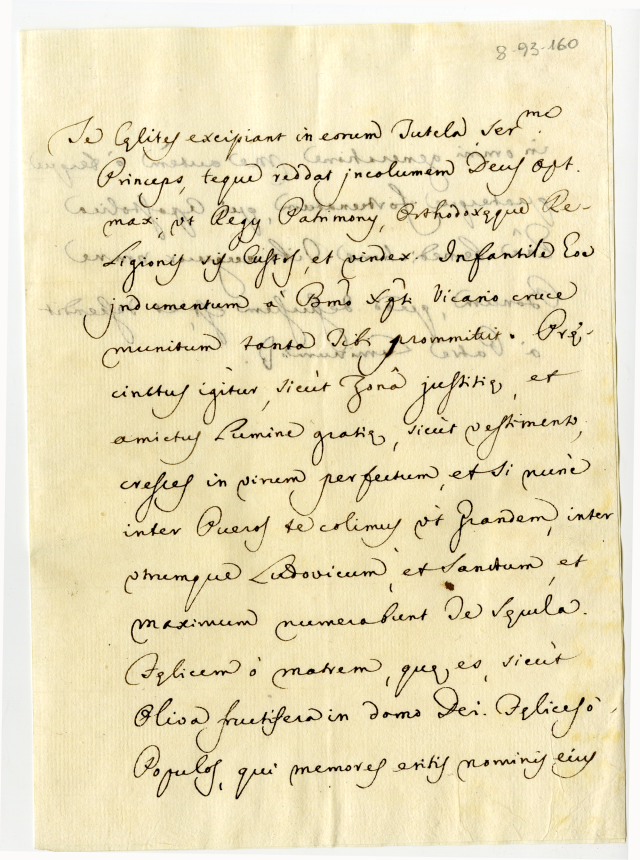 8-93-160
Te Cęlites excipiant in eorum Tutela Ser.mo
Princeps, teque reddat jncolumem Deus Opt.
max: vt Regÿ Patrimonÿ, Orthodoxęque Re-
Ligionis sis Custos, et vindex. Infantile Eoc
jndumentum à Bmõ Xptĩ Vicario cruce
munitum tanta Tibi prommitit. Prę-
cinctus igitur, sicut Zonâ justitię, et
amictus Lumine gratię, sicut vestimento,
cresces in virum perfectum, et si nunc
inter Pueros te colimus vt Grandem, inter
vtrumque Ludovicum, et Sanctum, et
maximum numerabunt Te Sęcula.
Fęlicem ò matrem, quę es, sicut
Oliva fructifera in domo Dei. Fęlices ò
Populos, qui memores eritis nominis eius